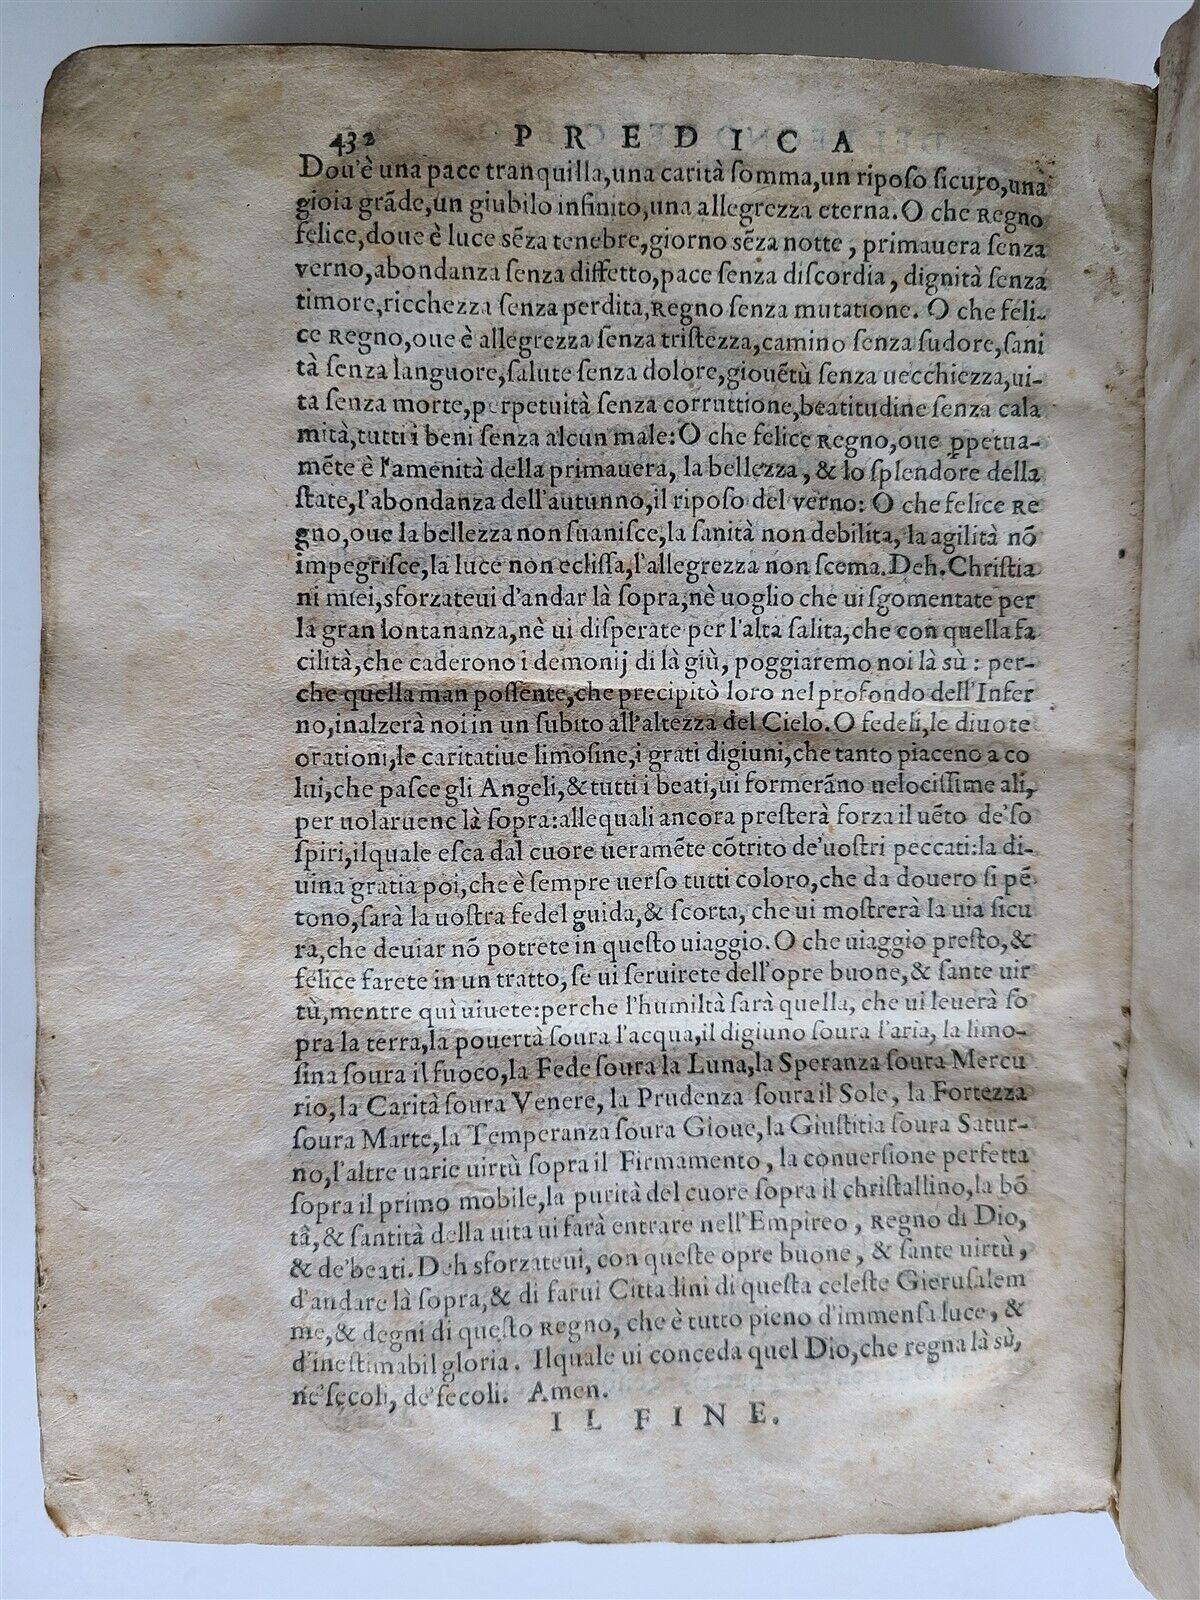 432 PREDICA
Dou'è una pace tranquilla,una carità ſomma,un ripoſo ſicuro,una
gioia grãde,un giubilo infinito,una allegrezza eterna.O che Regno
felice,doue è luce sẽza tenebre,giorno sẽza notte, primauera ſenza
verno,abondanza ſenza diffetto,pace ſenza diſcordia, dignità ſenza
timore,ricchezza ſenza perdita,Regno ſenza mutatione. O che feli-
ce Regno,oue è allegrezza ſenza triſtezza,camino ſenza ſudore,ſani
tà ſenza languore,ſalute ſenza dolore,giouẽtù ſenza uecchiezza,ui-
ta ſenza morte,perpetuità ſenza corruttione,beatitudine ſenza cala
mità,tutti i beni ſenza alcun male:O che felice Regno,oue ꝑpetua-
mẽte è l'amenità della primauera, la bellezza, & lo ſplendore della
ſtate,l'abondanza dell'autunno,il ripoſo del verno: O che felice Re
gno,oue la bellezza non ſuaniſce,la ſanità non debilita, la agilità nõ
impegriſce,la luce non ecliſſa,l'allegrezza non ſcema.Deh.Chriſtia
ni miei,sforzateui d'andar là ſopra,nè uoglio che ui ſgomentate per
la gran lontananza,nè ui diſperate per l'alta ſalita,che con quella fa
cilità,che caderono i demonij di là giù, poggiaremo noi là sù: per-
che quella man poſſente,che precipitò loro nel profondo dell'Infer
no,inalzerà noi in un ſubito all'altezza del Cielo.O fedeli,le diuote
orationi,le caritatiue limoſine,i grati digiuni,che tanto piaceno a co
lui,che paſce gli Angeli,& tutti i beati,ui formerãno uelociſſime ali,
per uolaruene là ſopra:allequali ancora preſterà forza il uẽto de'ſo
ſpiri,ilquale eſca dal cuore ueramẽte cõtrito de'uoſtri peccati:la di-
uina gratia poi,che è ſempre uerſo tutti coloro,che da douero ſi pẽ-
tono,ſarà la uoſtra fedel guida,& ſcorta, che ui moſtrerà la uia ſicu
ra,che deuiar nõ potrete in queſto uiaggio.O che uiaggio preſto,&
felice farete in un tratto,ſe ui ſeruirete dell'opre buone,& ſante uir
tù,mentre quì uiuete:perche l'humiltà ſarà quella, che ui leuerà ſo
pra la terra,la pouertà ſoura l'acqua,il digiuno ſoura l'aria, la limo-
ſina ſoura il fuoco,la Fede ſoura la Luna,la Speranza ſoura Mercu
rio,la Carità ſoura Venere, la Prudenza ſoura il Sole, la Fortezza
ſoura Marte,la Temperanza ſoura Gioue,la Giuſtitia ſoura Satur-
no,l'altre uarie uirtù ſopra il Firmamento, la conuerſione perfetta
ſopra il primo mobile,la purità del cuore ſopra il chriſtallino,la bõ
tà,& ſantità della uita ui farà entrare nell'Empireo, Regno di Dio,
& de'beati.Deh sforzateui, con queſte opre buone, & ſante uirtù,
d'andare là ſopra,& di farui Cittadini di queſta celeſte Gieruſalem
me,& degni di queſto Regno, che è tutto pieno d'immenſa luce, &
d'ineſtimabil gloria. Ilquale ui conceda quel Dio,che regna là sù,
ne'ſecoli, de'ſecoli. Amen.
IL FINE.